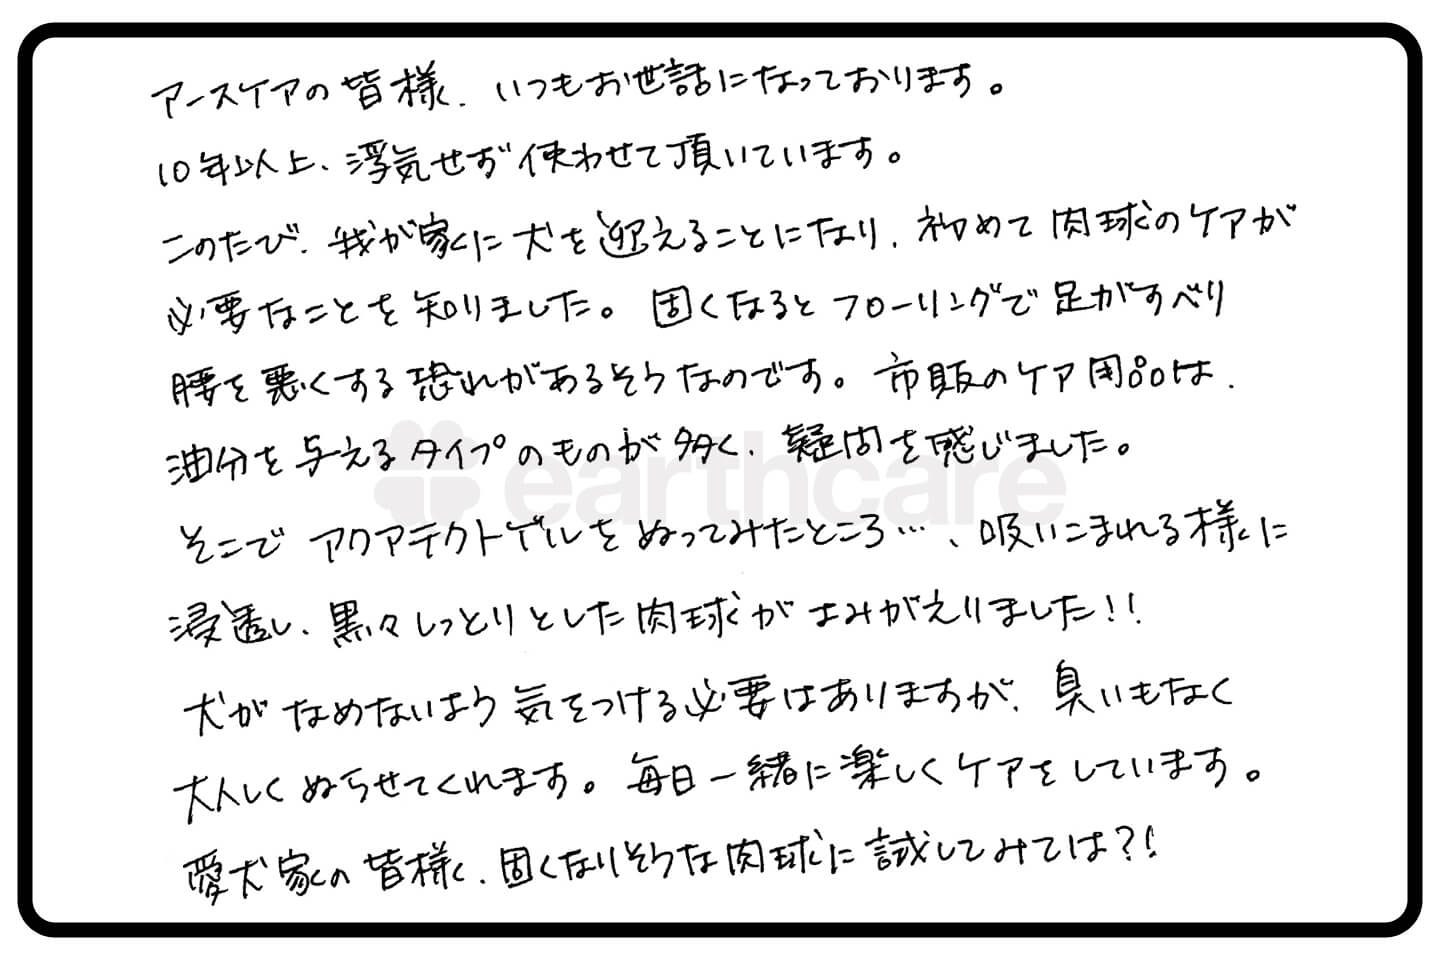 アースケアの皆様、いつもお世話になっております。
10年以上、浮気せず使わせて頂いています。
このたび、我が家に犬を迎えることになり、初めて肉球のケアが
必要なことを知りました。固くなるとフローリングで足がすべり
腰を悪くする恐れがあるそうなのです。市販のケア用品は、
油分を与えるタイプのものが多く、疑問を感じました。
earthcare
そこでアクアテクトゲルをぬってみたところ…、吸いこまれる様に
浸透し、黒々しっとりとした肉球がよみがえりました!!
犬がなめないよう気をつける必要はありますが、臭いもなく
大人しくぬらせてくれます。毎日一緒に楽しくケアをしています。
愛犬家の皆様、固くなりそうな肉球に試してみては?!